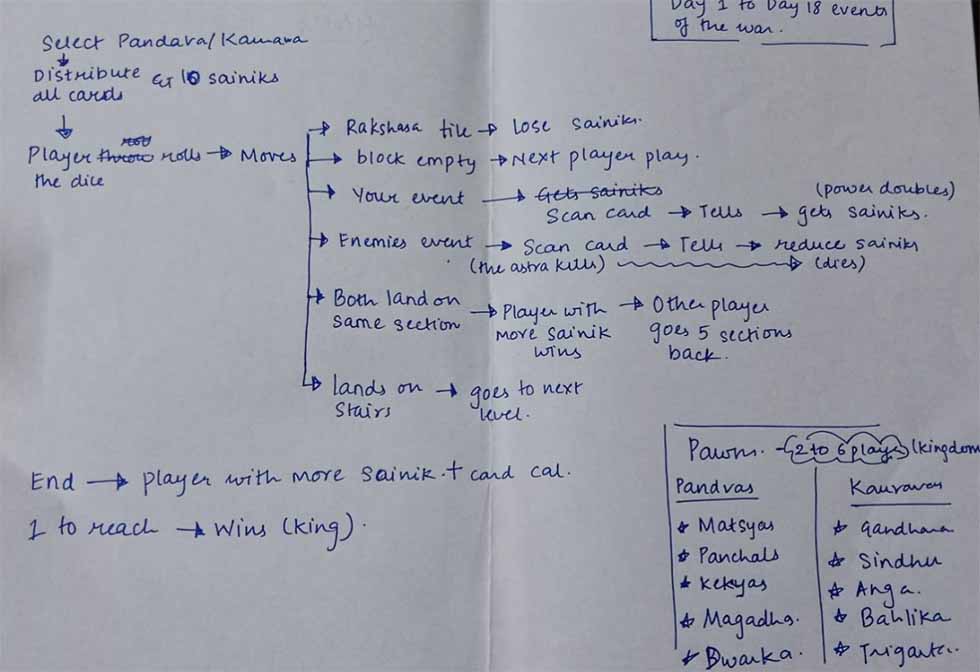 Day 1 to Day 18 events
of the war.
Select Pandava/Kaurava
Distribute & 10 sainiks
all cards
Player throw roll rolls → Moves
the dice
→ Rakshasa tile → Lose sainiks.
→ block empty → Next player play.
→ Your event → Gets sainiks (power doubles)
Scan card → Tells → gets sainiks.
→ Enemies event → Scan card → Tells → reduce sainiks
(the astra kills) → (dies)
→ Both land on → Player with → Other player
same section more sainik goes 5 sections
wins back.
→ lands on → goes to next
stairs level.
End → player with more sainik + card cal.
1 to reach → Wins (King).
Pawns - 2 to 6 plays (kingdom
Pandvas Kauravas
☆ Matsyas ☆ Gandhara
☆ Panchals ☆ Sindhu
☆ Kekyas ☆ Anga.
☆ Magadha. ☆ Bahlika
☆ Dwarka. ☆ Trigarta.